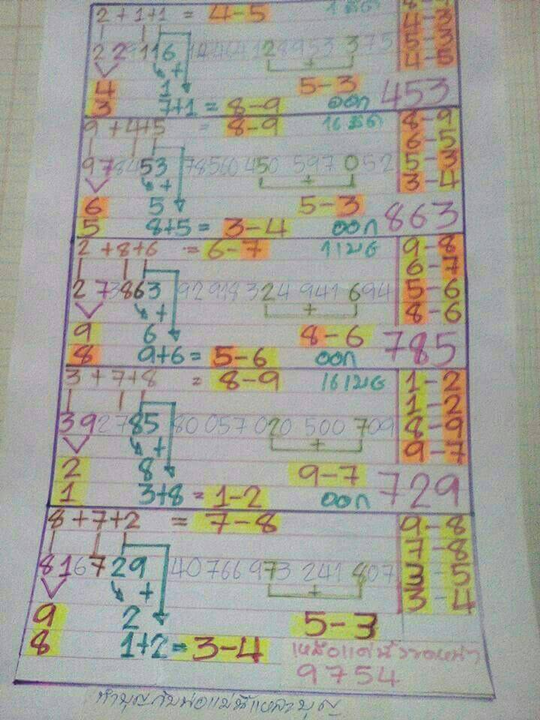 2 + 1 + 1 = 4-5 1 มีค
4-3
5-3
4-5
2 2 9116 28953 375
4 1 5-3
3 7+1 = 8-9 ออก 453
9 + 4+5 = 8-9 16 มีค 8-9
6-5
97 8453 78560 450 597 052 5-3
3-4
6 5 5-3
5 8+5 = 3-4 ออก 863
2 +8+6 = 6-7 1 เมย 9-8
6-7
2 73863 92 919 324 941 694 5-6
8-6
9 6 8-6
8 9+6 = 5-6 ออก 785
3 + 7+8 = 8-9 16 เมย 1-2
1-2
39 2785 80 057 020 500 709 8-9
9-7
2 8 9-7
1 3+8 = 1-2 ออก 729
8 +7+2 = 7-8 9-8
7-8
816729 40766 973 241 807 3-5
3-4
9 2 5-3
8 1+2 = 3-4
9754